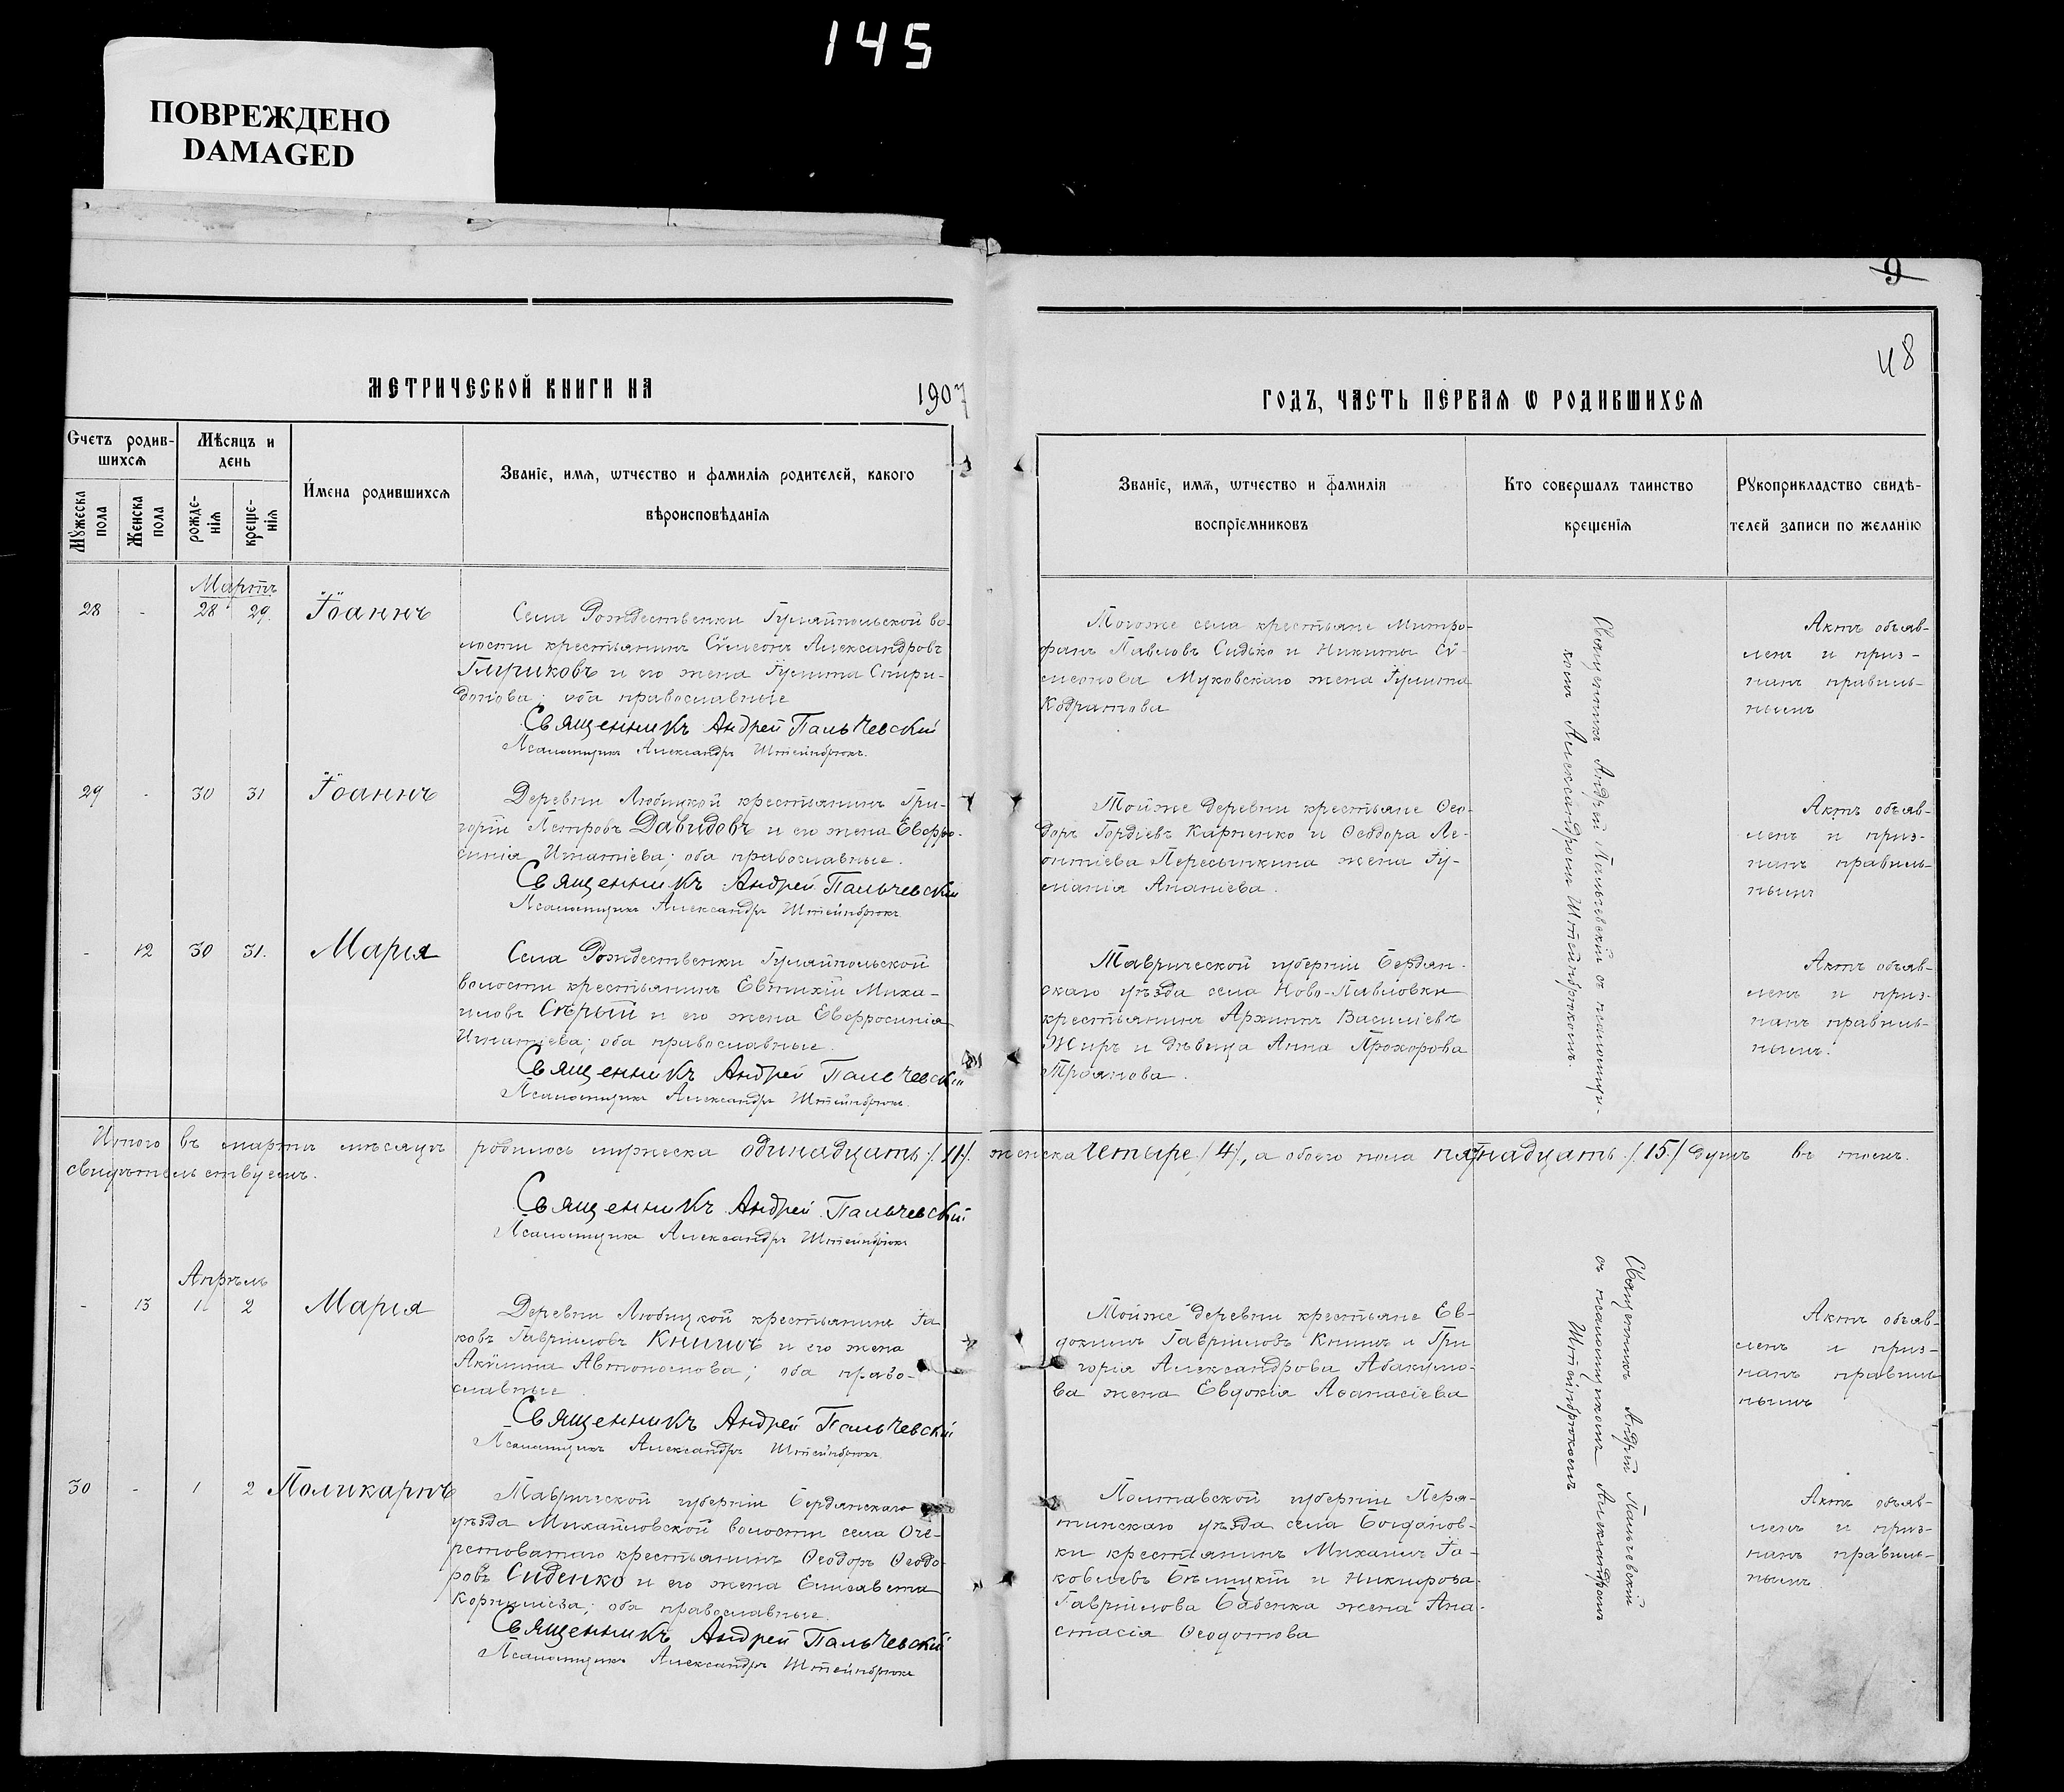 145
ПОВРЕЖДЕНО
DAMAGED
9
48
МЕТРИЧЕСКОЙ КНИГИ НА 1907
ГОДЪ, ЧАСТЬ ПЕРВАЯ Ѡ РОДИВШИХСЯ
Счетъ родив-
шихся
Мѣсяцъ и
день
Имена родившихся
Званіе, имя, ѡтчество и фамилія родителей, какого
вѣроисповѣданія
Мужеска
пола
Женска
пола
рожде-
нія
креще-
нія
Званіе, имя, ѡтчество и фамилія
воспріемниковъ
Кто совершалъ таинство
крещенія
Рукоприкладство свидѣ-
телей записи по желанію
Мартъ
28 - 28 29. Іоаннъ
Села Рождественки Гуляйпольской во-
лости крестьянинъ Сѵмеонъ Александровъ
и его жена Іулитта Спири-
донова; оба православные
Священникъ Андрей Пальчевскій
Псаломщикъ Александръ Штейнбрюкъ.
Тогоже села крестьяне Митро-
фанъ Павловъ Сидько и Никиты Сѵ-
меонова Муковскаго жена Іулитта
Кодратова
Священникъ Андрей Пальчевскій съ псаломщи-
комъ Александромъ Штейнбрюкомъ.
Актъ объяв-
ленъ и приз-
нанъ правиль-
нымъ
29 - 30 31 Іоаннъ
Деревни Любицкой крестьянинъ Гри-
горій Петровъ Давидовъ и его жена Евфро-
синія Игнатіева; оба православные.
Священникъ Андрей Пальчевскій
Псаломщикъ Александръ Штейнбрюкъ
Тойже деревни крестьяне Ѳео-
доръ Гордіевъ Карпенко и Ѳеодора Ле-
онтіева Пересыпкина жена Іу-
ліанія Ананіева.
Актъ объяв-
ленъ и приз-
нанъ правиль-
нымъ
- 12 30 31. Марія
Села Рождественки Гуляйпольской
волости крестьянинъ Евтихій Миха-
иловъ Сѣрый и его жена Евфросинія
Игнатіева; оба православные.
Священникъ Андрей Пальчевскій
Псаломщикъ Александръ Штейнбрюкъ.
Таврической губерніи Бердян-
скаго уѣзда села Ново-Павловки
крестьянинъ Архипъ Василіевъ
Жиръ и дѣвица Анна Прохорова
Троянова.
Актъ объяв-
ленъ и приз-
нанъ правиль-
нымъ.
Итого въ мартѣ мѣсяцѣ родилось мужеска одинадцать /11/. женска четыре /4/, а обоего пола пятнадцать /15/ душъ въ томъ.
свидѣтельствуемъ.
Священникъ Андрей Пальчевскій
Псаломщикъ Александръ Штейнбрюкъ
Апрѣль
- 13 1 2 Марія
Деревни Любицкой крестьянинъ Іа-
ковъ Гавріиловъ Книшъ и его жена
Акилина Автономова; оба право-
славные.
Священникъ Андрей Пальчевскій
Псаломщикъ Александръ Штейнбрюкъ
Тойже деревни крестьяне Ев-
докимъ Гавріиловъ Книшъ и Гри
горія Александрова Абакумо-
ва жена Евдокія Аѳанасіева
Священникъ Андрей Пальчевскій
съ псаломщикомъ Александромъ
Штейнбрюкомъ
Актъ объяв-
ленъ и приз-
нанъ правиль-
нымъ
30 - 1 2 Поликарпъ
Таврической губерніи Бердянскаго
уѣзда Михайловской волости села Оче-
ретоватаго крестьянинъ Ѳеодоръ Ѳеодо-
ровъ Сиденко и его жена Елисавета
Корниліева; оба православные.
Священникъ Андрей Пальчевскій
Псаломщикъ Александръ Штейнбрюкъ
Полтавской губерніи Пиря-
тинскаго уѣзда села Богданов-
ки крестьянинъ Михаилъ Іа-
ковлевъ Бѣлицкій и Никифора
Гавріилова Бабенка жена Ана-
стасія Ѳеодотова
Актъ объяв-
ленъ и приз-
нанъ правиль-
нымъ